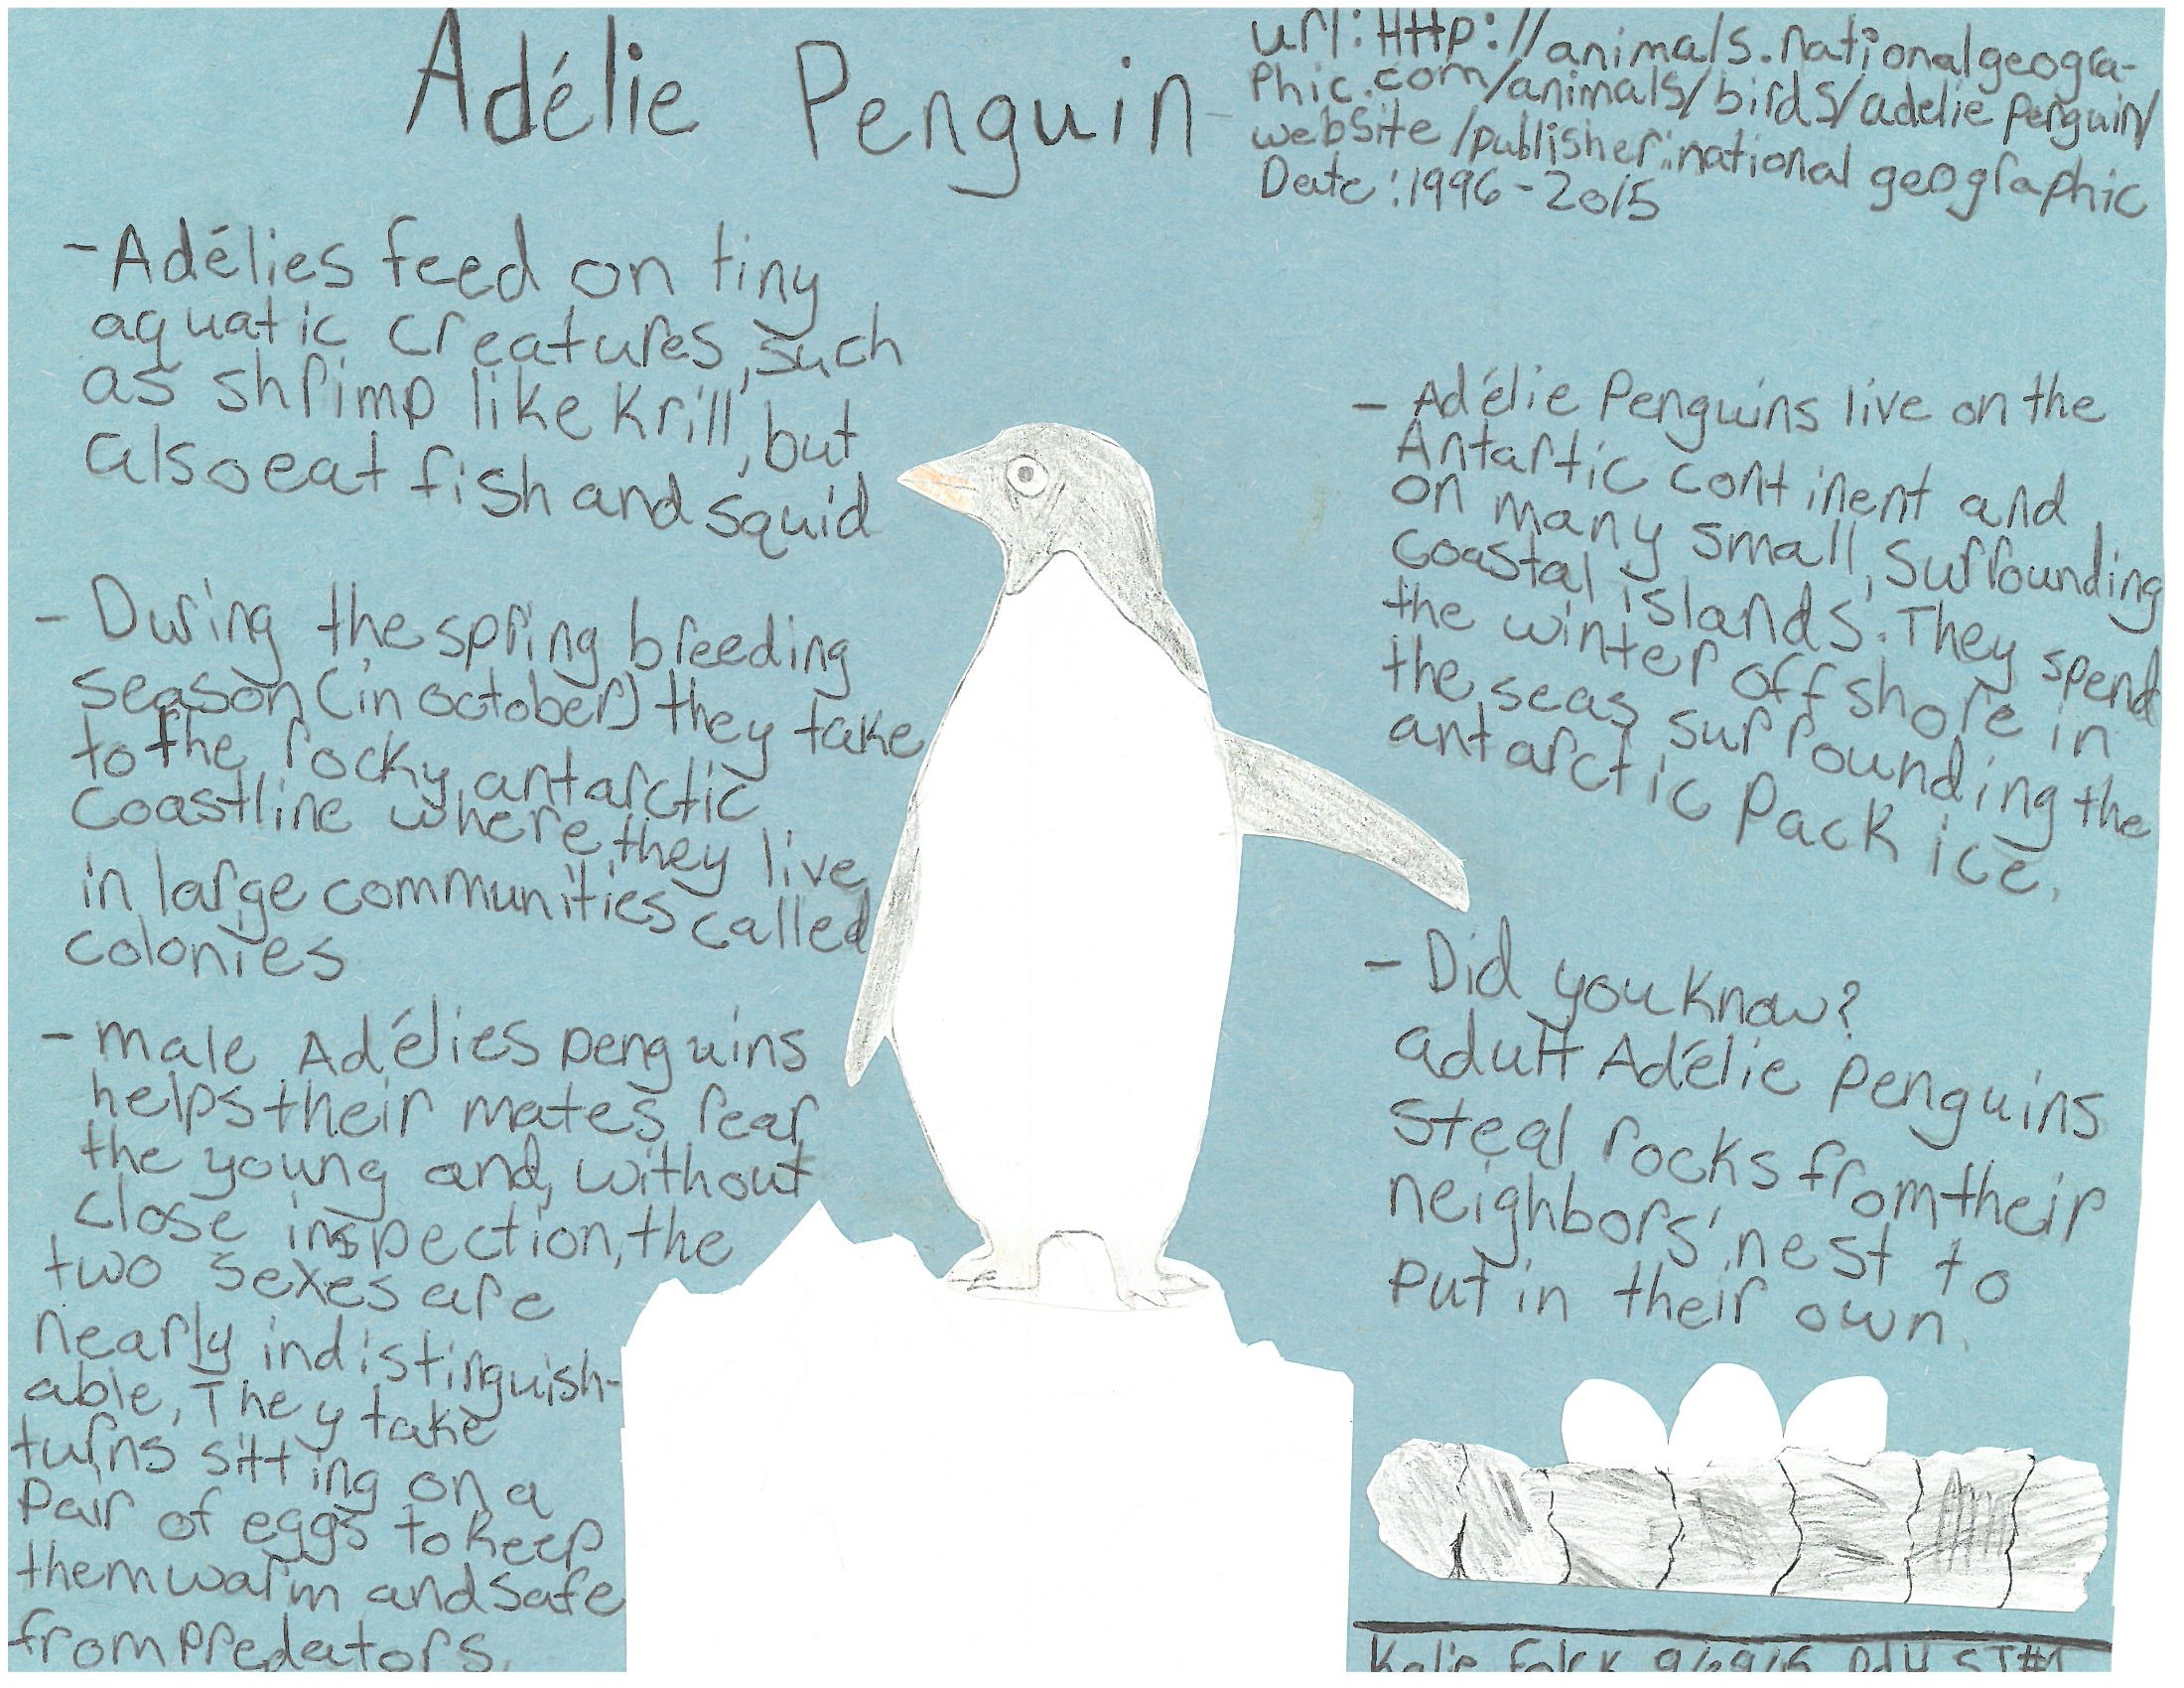 Adélie Penguin
url: Http://animals.nationalgeogra-
phic.com/animals/birds/adelie penguin/
website/publisher: national geographic
Date: 1996-2015
- Adélies feed on tiny
aquatic creatures, such
as shrimp like Krill, but
also eat fish and squid
- During the spring breeding
season (in october) they take
to the rocky antarctic
coastline where they live
in large communities called
colonies
- male Adélies penguins
helps their mates rear
the young and, without
close inspection, the
two sexes are
nearly indistinguish-
able, They take
turns sitting on a
pair of eggs to keep
them warm and safe
from predators.
- Adélie Penguins live on the
Antartic continent and
on many small, surrounding
coastal islands. They spend
the winter offshore in
the seas surrounding the
antarctic pack ice.
- Did you know?
adult Adélie penguins
steal rocks from their
neighbors' nest to
put in their own.
9/29/15 ST#1